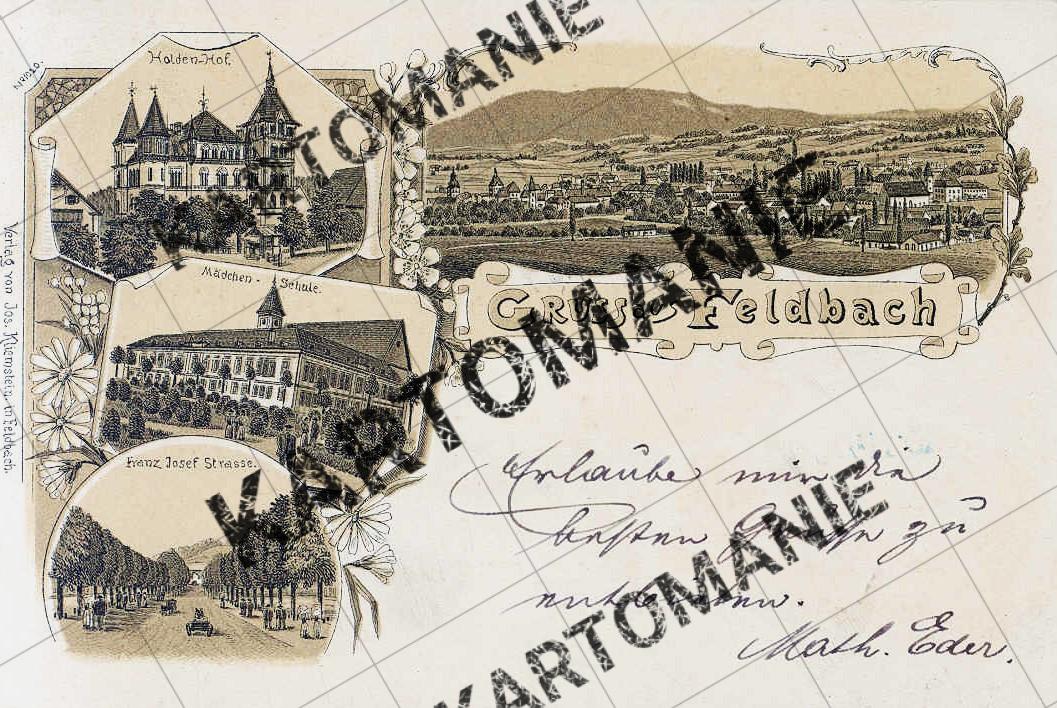 No 1520.
Halden-Hof.
Mädchen-Schule.
Franz Josef Strasse.
Verlag von Jos. Kliemstein, in Feldbach.
Gruss aus Feldbach
Erlaube mir die
besten Grüße zu
entbieten.
Math. Eder.
KARTOMANIE
KARTOMANIE
KARTOMANIE
KARTOMANIE